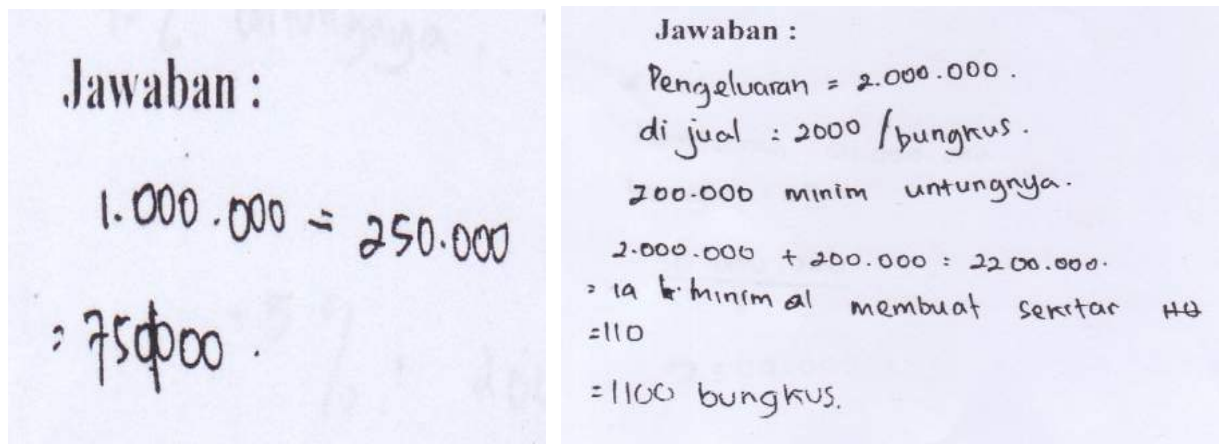 Jawaban :
1.000.000 = 250.000
= 750000.
Jawaban :
Pengeluaran = 2.000.000.
di jual : 2000 /bungkus.
200.000 minim untungnya.
2.000.000 + 200.000 = 2200.000.
= ia minimal membuat sekitar
=110
=1100 bungkus.